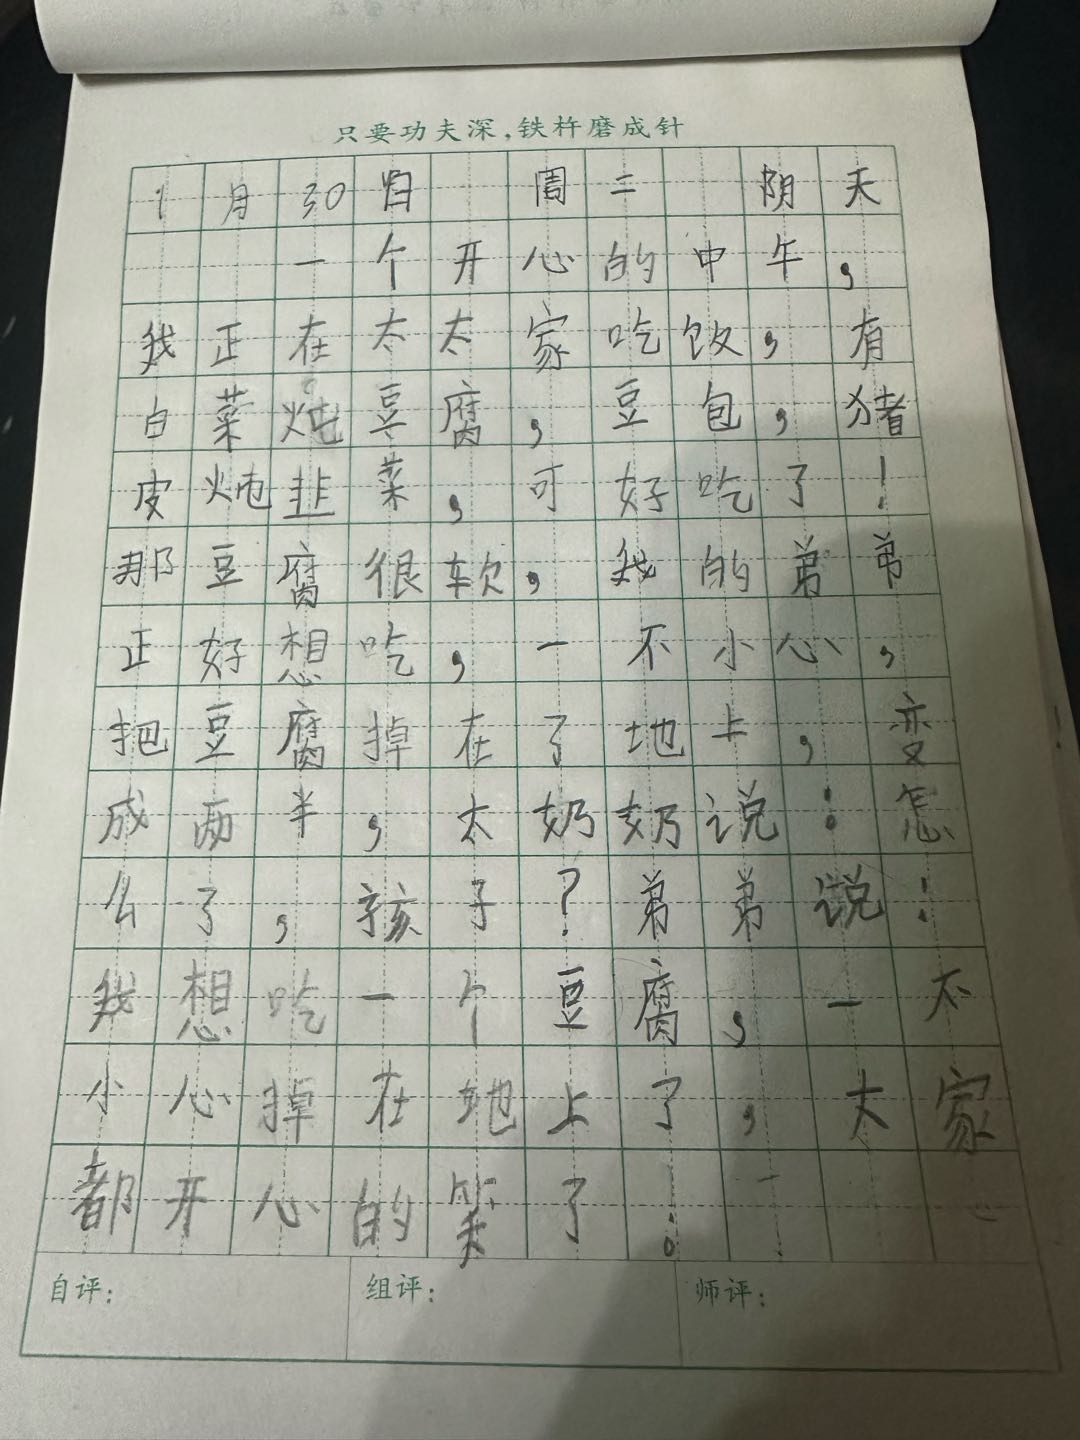 只要功夫深,铁杵磨成针
1月30日 周二 阴天
一个开心的中午，
我正在太太家吃饭，有
白菜炖豆腐，豆包，猪
皮炖韭菜，可好吃了！
那豆腐很软，我的弟弟
正好想吃，一不小心，
把豆腐掉在了地上，变
成两半，太奶奶说：怎
么了，孩子？弟弟说：
我想吃一个豆腐，一不
小心掉在地上了，大家
都开心的笑了！
自评： 组评： 师评：